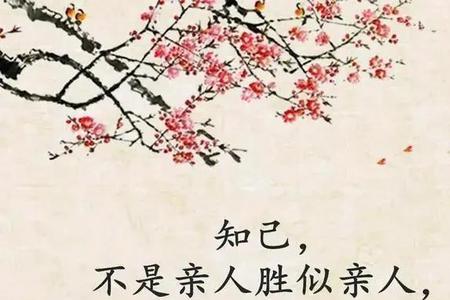 知己，
不是亲人胜似亲人，